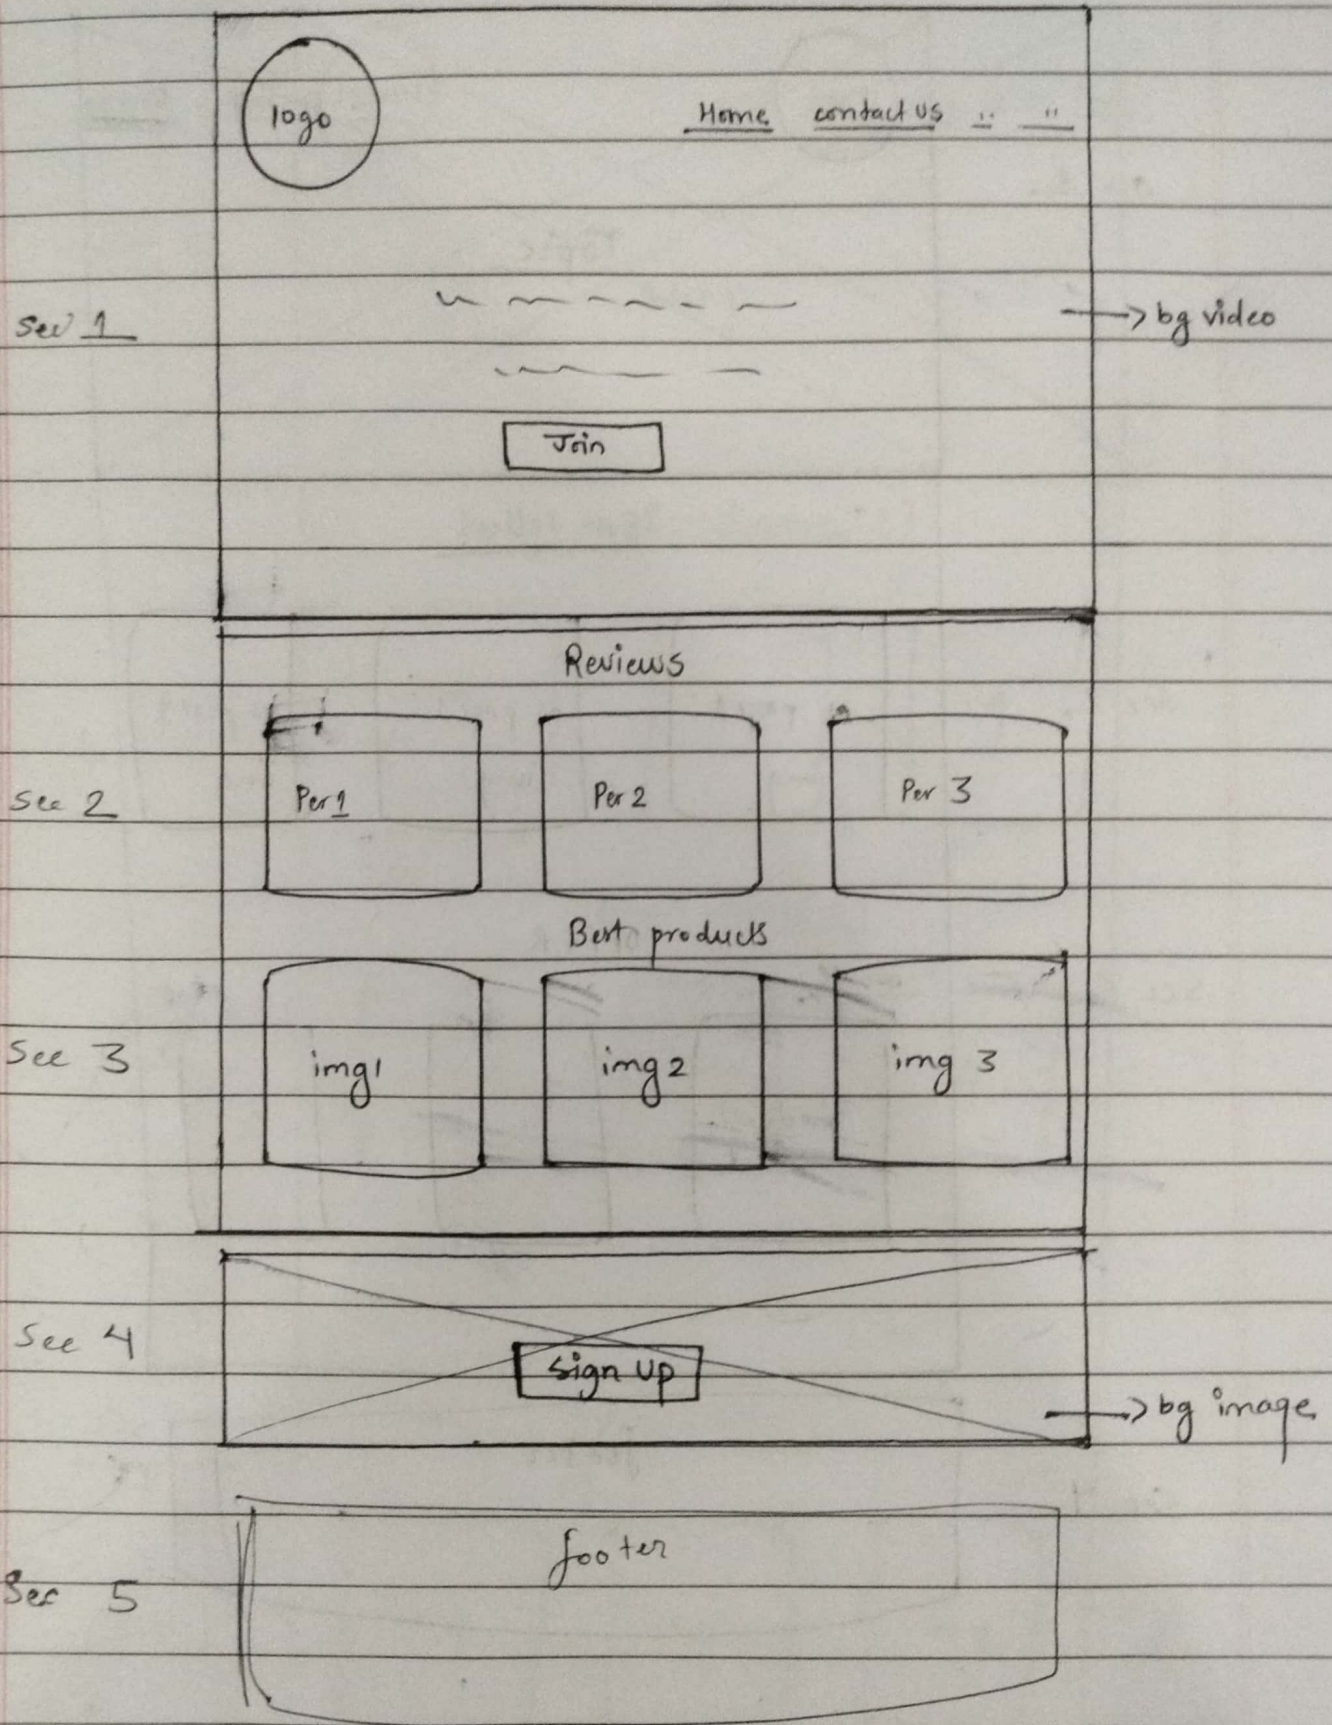 logo
Home contact us
sec 1
bg video
Join
Reviews
Sec 2
Per 1 Per 2 Per 3
Best products
Sec 3
img1 img 2 img 3
Sec 4
Sign Up
bg image
footer
Sec 5